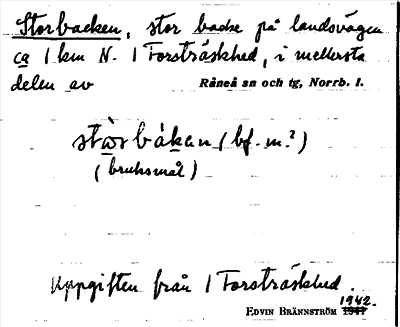 Storbacken, stor backe på landsvägen
ca 1 km N. I Forsträskhed, i mellersta
delen av Råneå sn och tg, Norrb. l.
stòrbákan (bf. m.?)
(bruksmål)
Uppgiften från I Forsträskhed.
1942.
EDVIN BRÄNNSTRÖM 1941